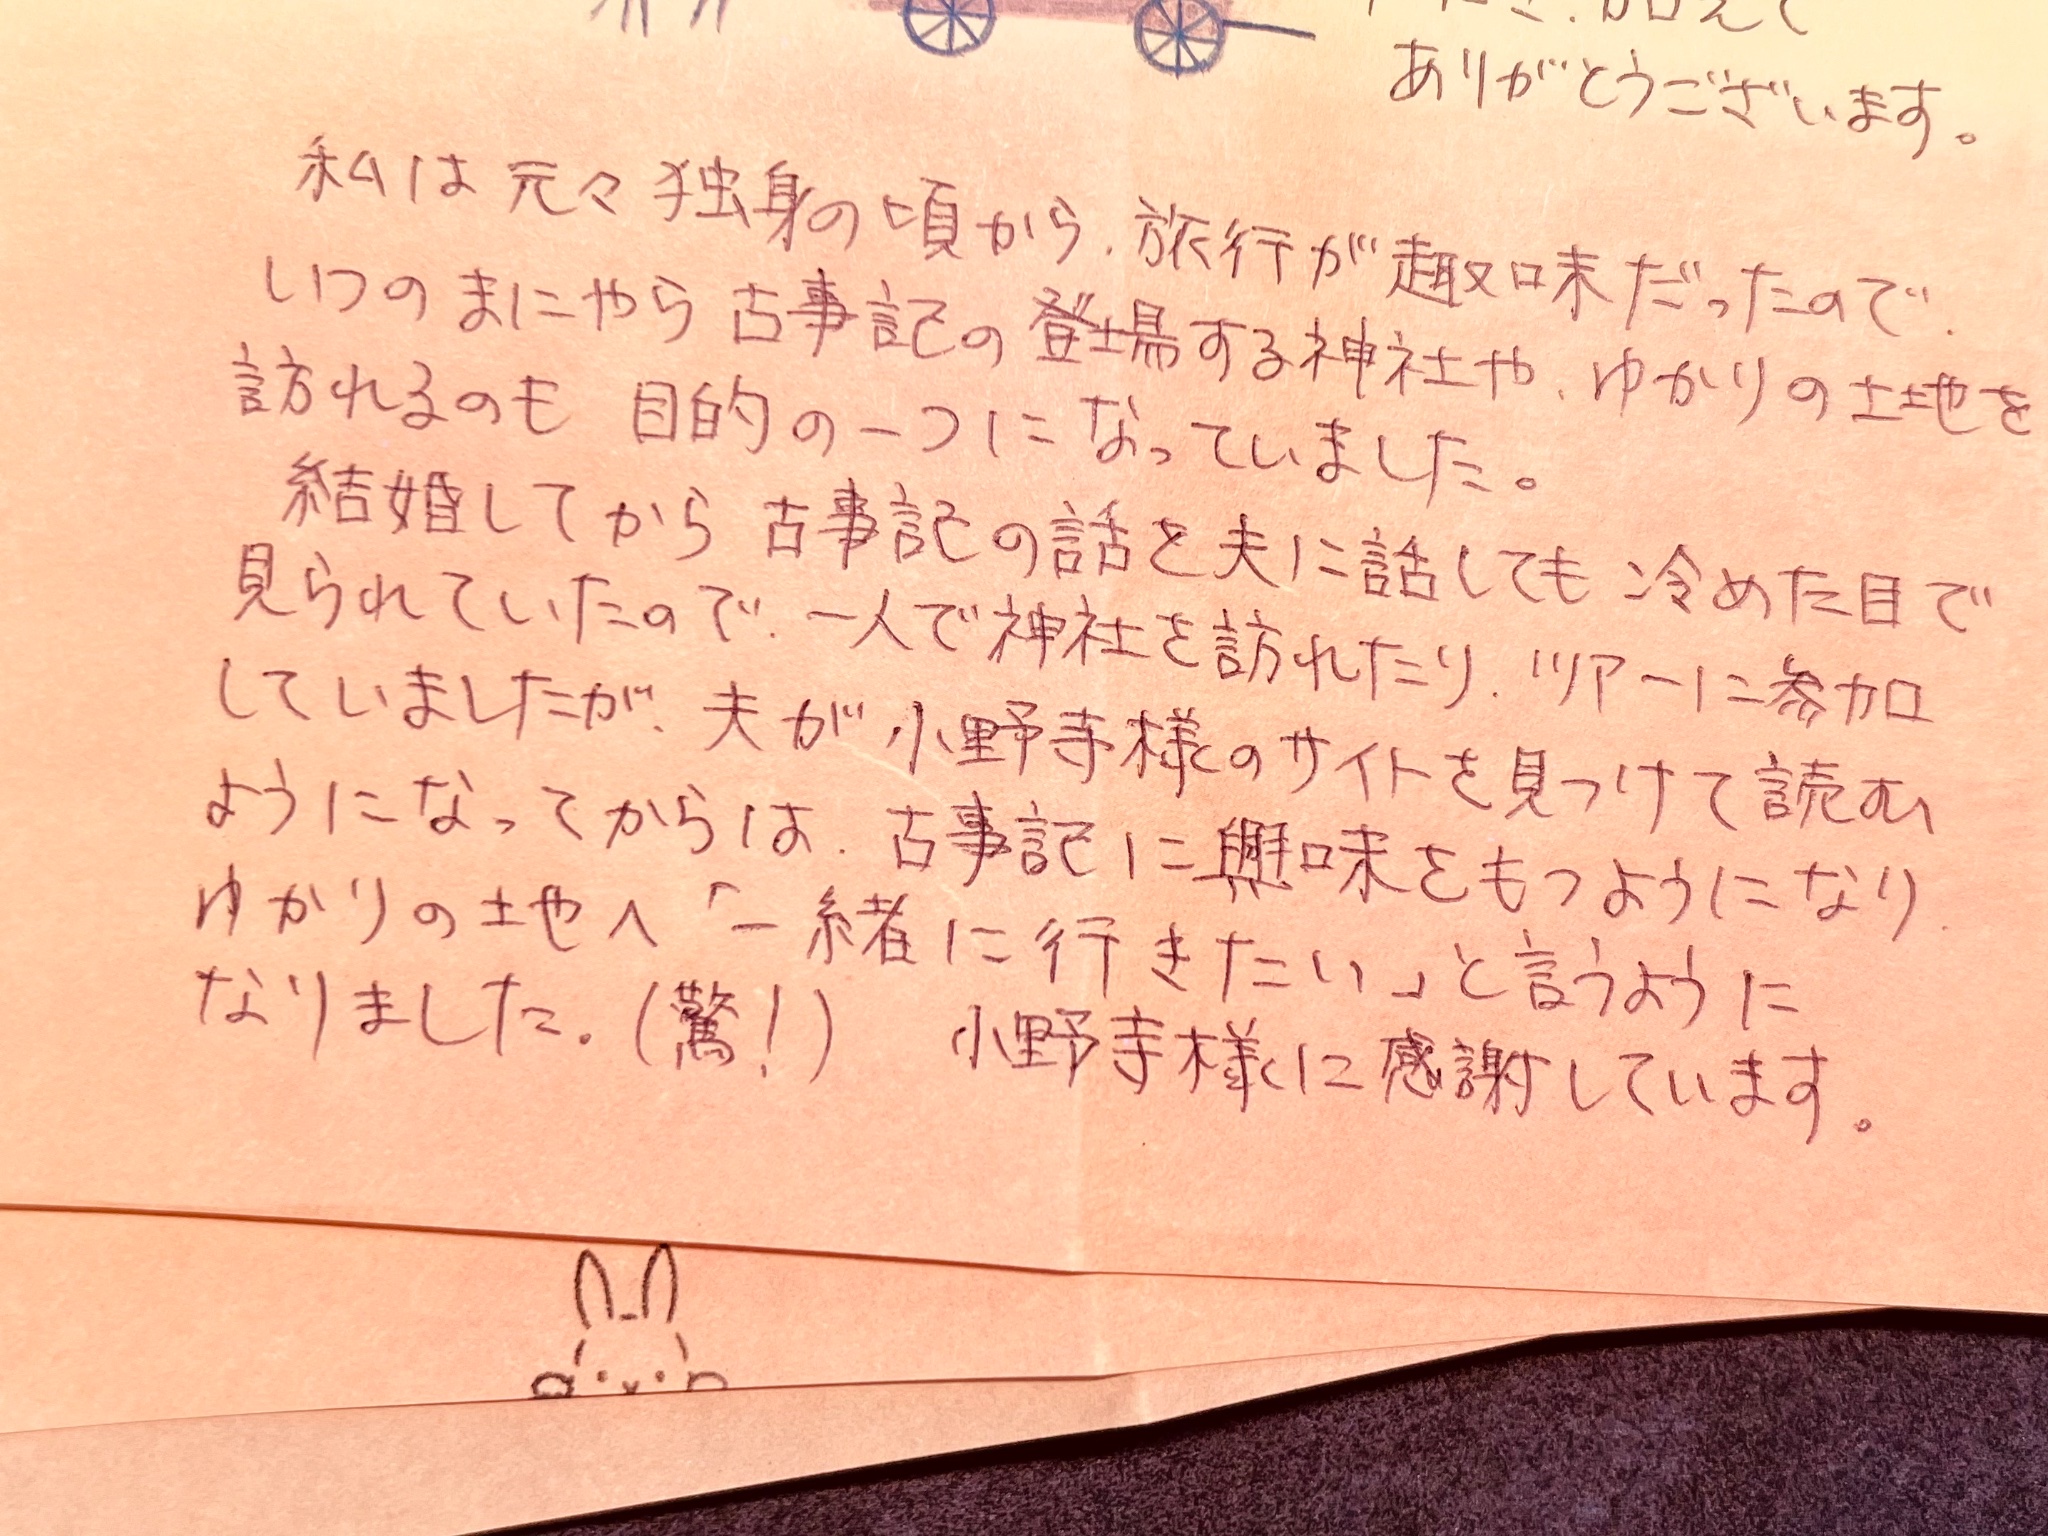 加えて
ありがとうございます。
私は元々独身の頃から、旅行が趣味だったので、
いつのまにやら古事記の登場する神社や、ゆかりの土地を
訪れるのも目的の一つになっていました。
結婚してから古事記の話を夫に話しても冷めた目で
見られていたので、一人で神社を訪れたり、ツアーに参加
していましたが、夫が小野寺様のサイトを見つけて読む
ようになってからは、古事記に興味をもつようになり、
ゆかりの土地へ「一緒に行きたい」と言うように
なりました。(驚!) 小野寺様に感謝しています。